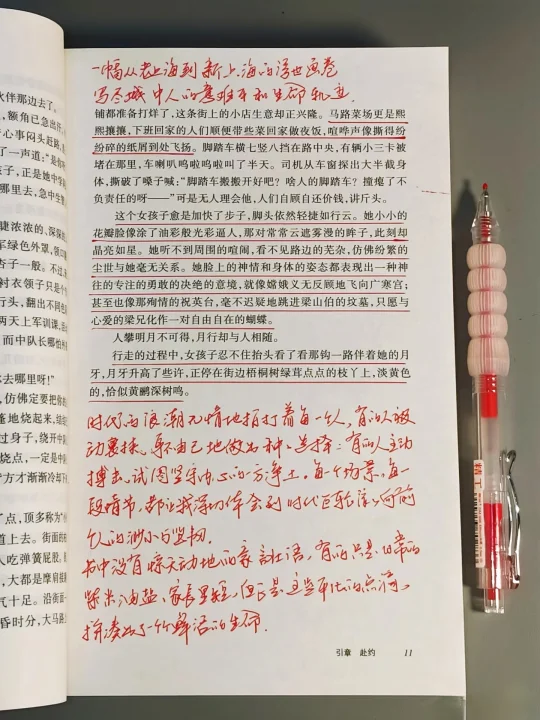 一幅从老上海到新上海的浮世画卷
写尽城中人的意难平和生命轨迹.
铺都准备打烊了，这条街上的小店生意却正兴隆。马路菜场更是熙
熙攘攘，下班回家的人们顺便带些菜回家做夜饭，喧哗声像撕得纷
纷碎的纸屑到处飞扬。脚踏车横七竖八挡在路中央，有辆小三卡被
堵在那里，车喇叭呜啦呜啦叫了半天。司机从车窗探出大半截身
体，撕破了嗓子喊：“脚踏车搬搬开好吧？啥人的脚踏车？撞瘪了不
负责任的呀——”可是无人理会他，人们自顾自还价钱，讲斤头。
这个女孩子愈是加快了步子，脚头依然轻捷如行云。她小小的
花瓣脸像涂了油彩般光彩逼人，那对常常云遮雾漫的眸子，此刻却
晶亮如星。她听不到周围的喧闹，看不见路边的芜杂，仿佛纷繁的
尘世与她毫无关系。她脸上的神情和身体的姿态都表现出一种神
往的专注的勇敢的决绝的意境，就像嫦娥义无反顾地飞向广寒宫；
甚至也像那殉情的祝英台，毫不迟疑地跳进梁山伯的坟墓，只愿与
心爱的梁兄化作一对自由自在的蝴蝶。
人攀明月不可得，月行却与人相随。
行走的过程中，女孩子忍不住抬头看了看那钩一路伴着她的月
牙，月牙升高了些许，正停在街边梧桐树绿茸点点的枝丫上，淡黄色
的，恰似黄鹂深树鸣。
时代的浪潮无情地拍打着每一个人，有的人被
动裹挟，身不由己地做出种种选择；有的人主动
搏击，试图坚守内心的一方净土。每个场景，每一
段情节，都让我深切体会到时代巨轮滚滚向前
个人的渺小与坚韧.
书中没有惊天动地的豪言壮语，有的只是日常的
柴米油盐、家长里短，但正是这些平凡的点滴，
拼凑出了一个个鲜活的生命.
引章 赴约 11
伙伴那边去了。
，额角已急出汗
心事闷头赶路，
了一声道：“是你
子，正是她中学
哪里去，急中生
睫浓浓的、深深
军绿色外罩，领
杏子一般。不过
衬衣领子只是个
行头，翻出不同
两天上军训课，
而中队长哪怕
去哪里呀！”
，仿佛定要把你
蓬地烧起来，结
过身子，绕开中
烧点，一定是中
方才渐渐冷却
了点，顶多称为
道上去。街面
人吃弹簧屁股，
，大都是摩肩接
气十足。沿街面
昏时分，大马路
精工